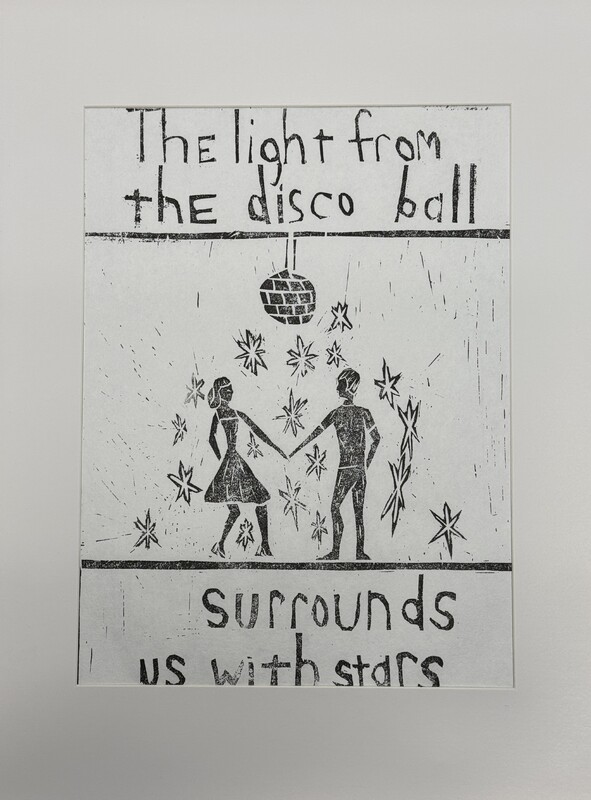 The light from
the disco ball
surrounds
us with stars